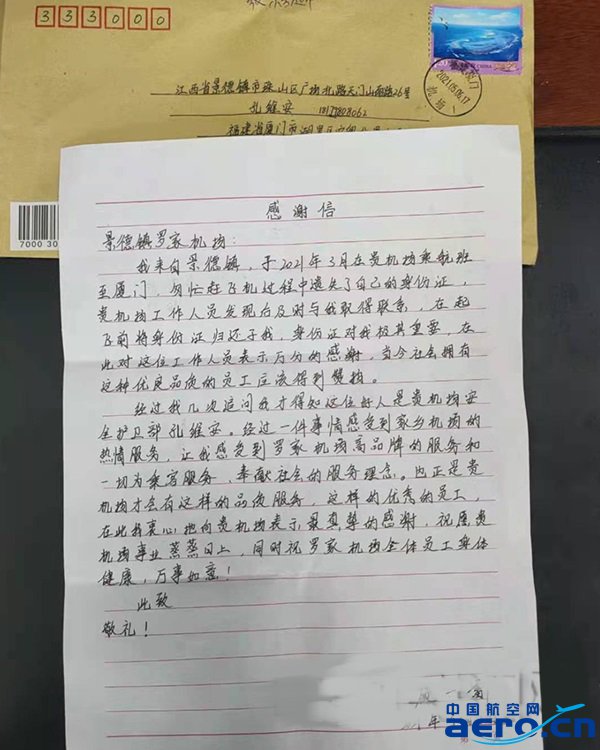 333000
CHINA
2021.05.08.17
江西省景德镇市珠山区广场北路天门山
26号
孔维安
福建省厦门市湖里区
7000 30
感谢信
景德镇罗家机场：
我来自景德镇，于2021年3月在贵机场乘航班
至厦门，匆忙赶飞机过程中遗失了自己的身份证，
贵机场工作人员发现后及时与我取得联系，在起
飞前将身份证归还于我，身份证对我极其重要，在
此对这位工作人员表示万分的感谢，当今社会拥有
这种优良品质的员工应该得到赞扬。
经过我几次追问我才得知这位好人是贵机场安
全护卫部孔维安。经过一件事情感受到家乡机场的
热情服务，让我感受到罗家机场高品牌的服务和
一切为乘客服务，奉献社会的服务理念。也正是贵
机场才会有这样的品质服务，这样的优秀的员工，
在此我衷心地向贵机场表示最真挚的感谢，祝愿贵
机场事业蒸蒸日上，同时祝罗家机场全体员工身体
健康，万事如意！
此致
敬礼！
年
中国航空网
aero.cn